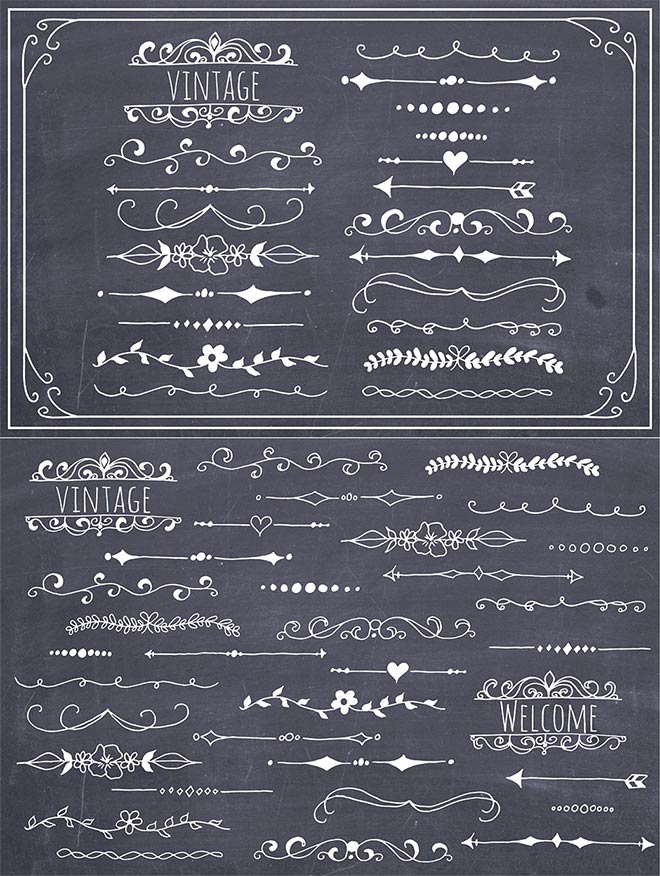 VINTAGE
VINTAGE
WELCOME